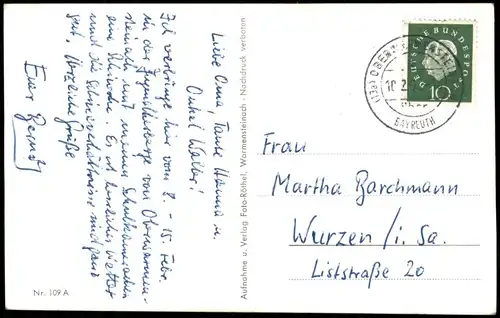 Liebe Oma, Tante Hanna u.
Onkel Walter!
Ich verbringe hier vom 8. – 15. Febr.
in der Jugendherberge von Oberwarmen-
steinach mit meinen Schulkameraden
eine Skiwoche. Es ist herrliches Wetter
und die Schneeverhältnisse sind ganz
gut. Herzliche Grüße
Euer
Nr. 109 A
Aufnahme u. Verlag Foto-Röthel, Warmensteinach - Nachdruck verboten
DEUTSCHE BUNDESPOST
10
(13a)
BAYREUTH
Frau
Martha Barchmann
Wurzen /i. Sa.
Liststraße 20